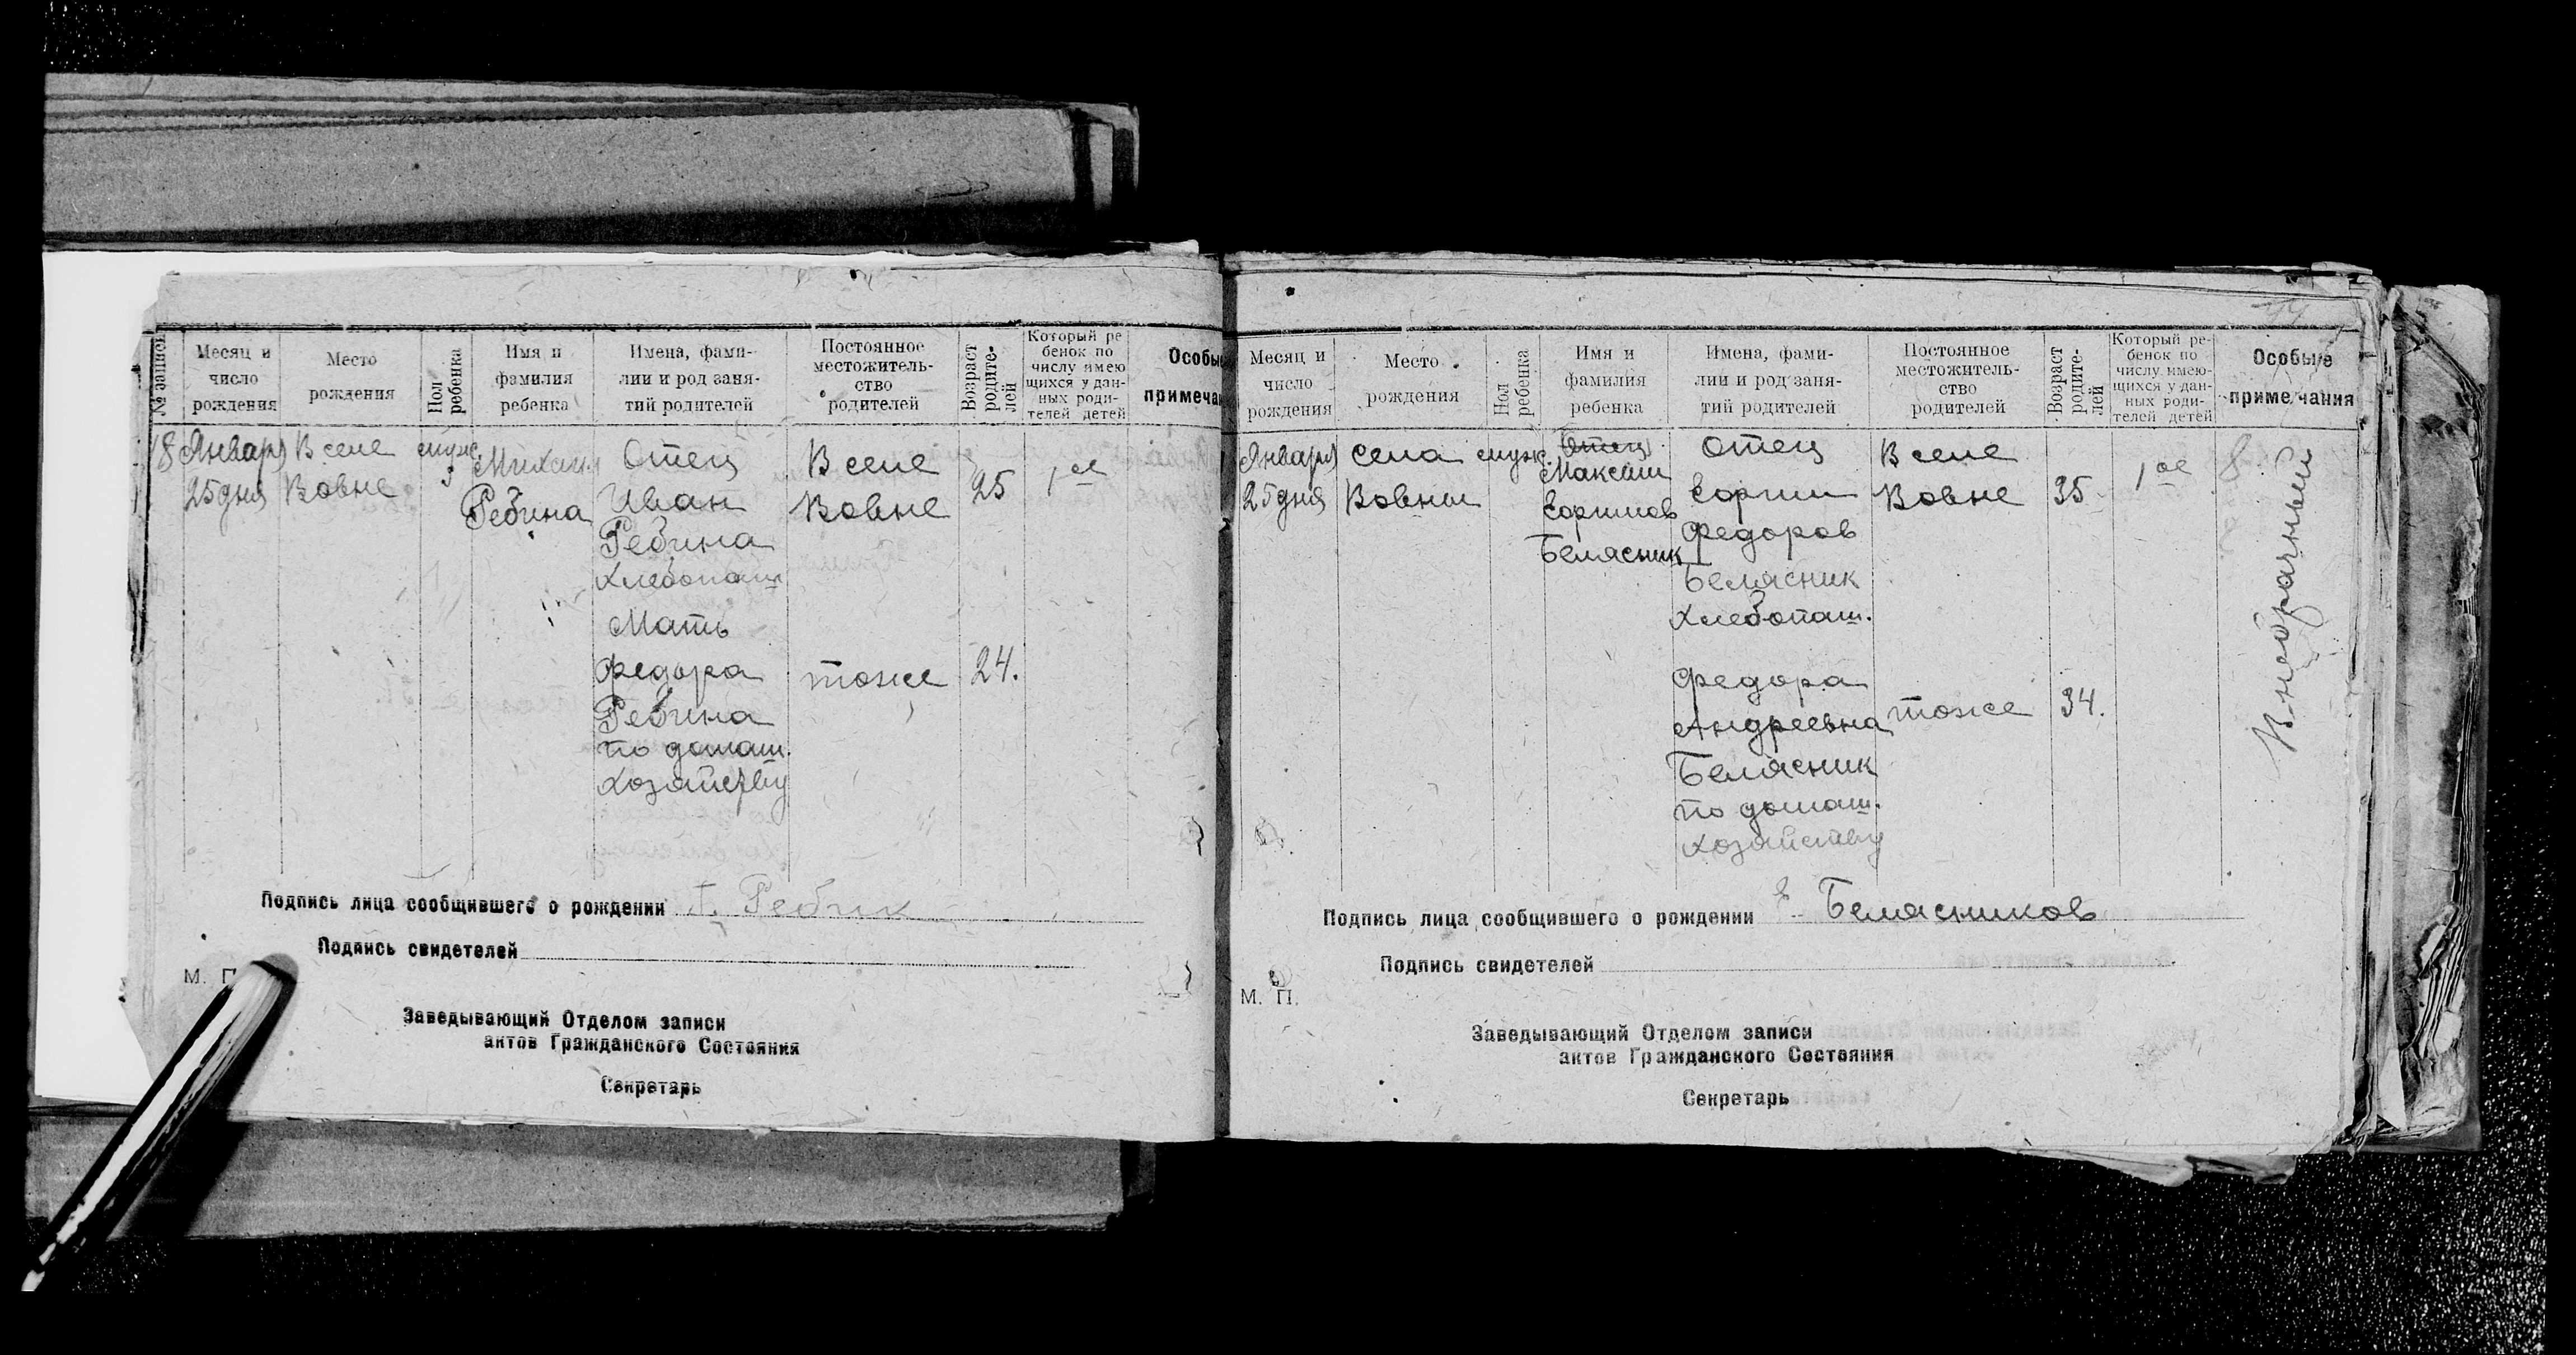 № записи
Месяц и
число
рождения
Место
рождения
Пол
ребенка
Имя и
фамилия
ребенка
Имена, фами-
лии и род заня-
тий родителей
Постоянное
местожитель-
ство
родителей
Возраст
родите-
лей
Который ре
бенок по
числу имею
щихся у дан-
ных роди-
телей детей
Особые
примеча
18
Января
25 дня
В селе
Вовне
муж.
Михаил
Ребина
Отец
Иван
Ребина
хлебопаш
Мать
Федора
Ребина
по домаш.
хозяйству
В селе
Вовне
тоже
25
24.
1ое
Подпись лица сообщившего о рождении Ребик
Подпись свидетелей
М. П
Заведывающий Отделом записи
актов Гражданского Состояния
Секретарь
Месяц и
число
рождения
Место
рождения
Пол
ребенка
Имя и
фамилия
ребенка
Имена, фами-
лии и род заня-
тий родителей
Постоянное
местожитель-
ство
родителей
Возраст
родите-
лей
Который ре-
бенок по
числу имею-
щихся у дан-
ных роди-
телей детей
Особые
примечания
Января
25 дня
села
Вовны
муж.
Отец
Максим
Белясник
Отец
Федоров
Белясник
хлебопаш.
Федора
Андреевна
Белясник
по домаш.
хозяйству
В селе
Вовне
тоже
35
34.
1ое
8
Внебрачный
Подпись лица сообщившего о рождении Е Белясников
Подпись свидетелей
М. П.
Заведывающий Отделом записи
актов Гражданского Состояния
Секретарь